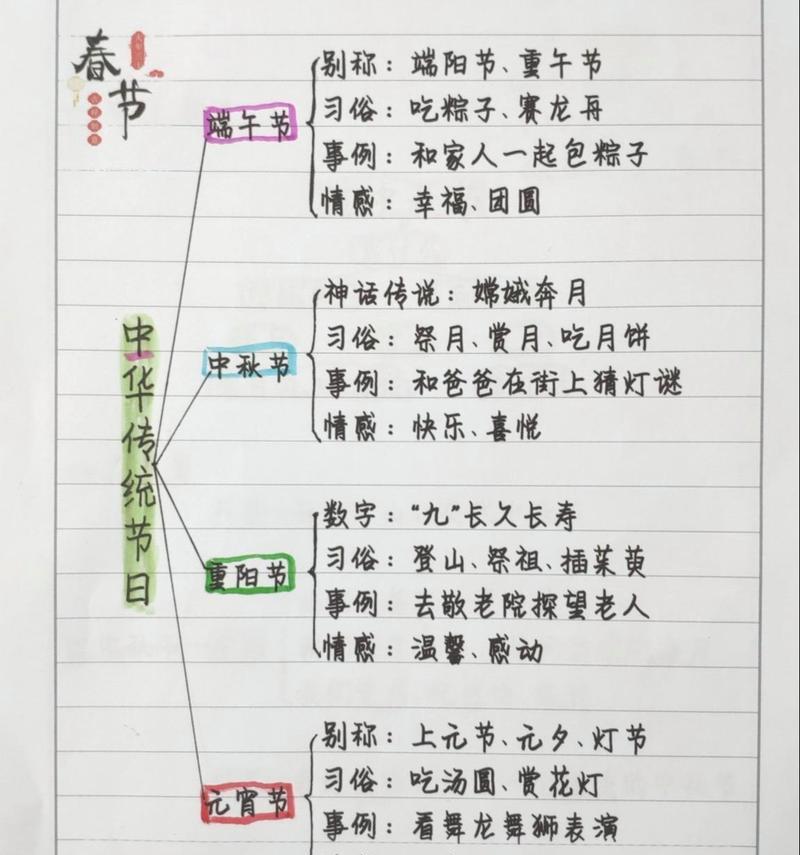 春节
端午节
别称：端阳节、重午节
习俗：吃粽子、赛龙舟
事例：和家人一起包粽子
情感：幸福、团圆
中华传统节日
中秋节
神话传说：嫦娥奔月
习俗：祭月、赏月、吃月饼
事例：和爸爸在街上猜灯谜
情感：快乐、喜悦
重阳节
数字：“九”长久长寿
习俗：登山、祭祖、插茱萸
事例：去敬老院探望老人
情感：温馨、感动
元宵节
别称：上元节、元夕、灯节
习俗：吃汤圆、赏花灯
事例：看舞龙舞狮表演